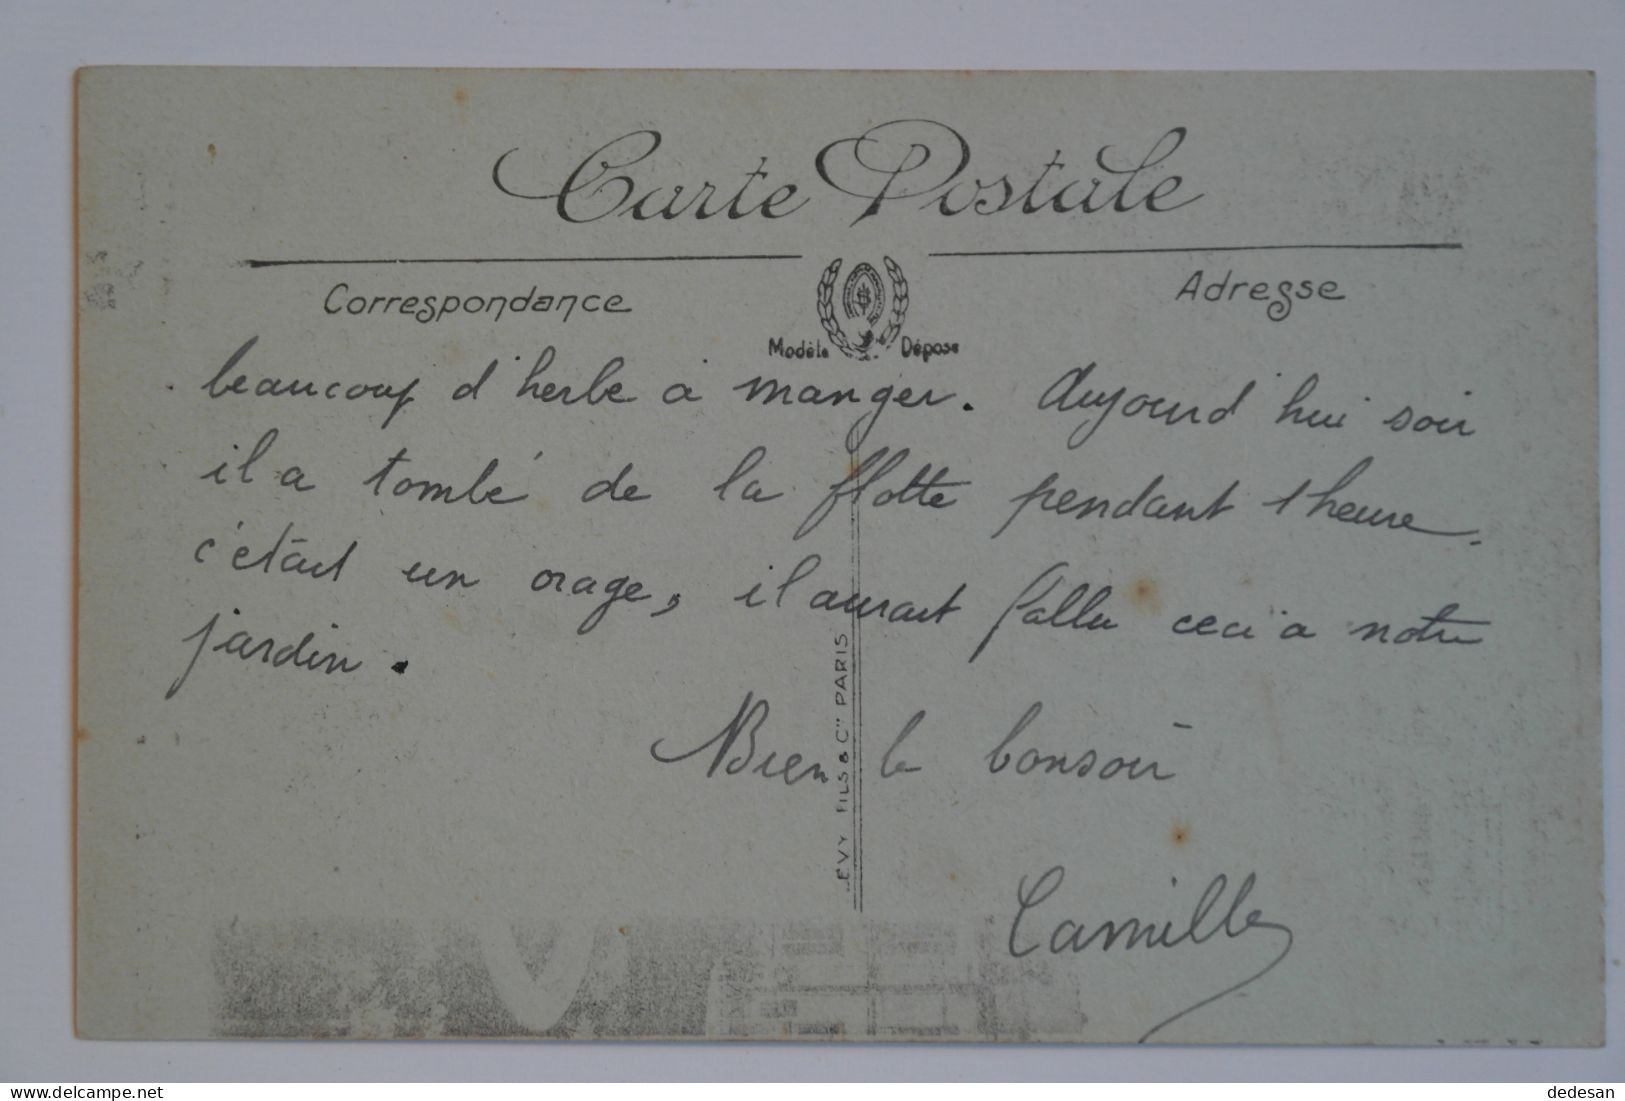 Carte Postale
Correspondance
Adresse
Modèle Déposé
beaucoup d'herbe a manger. Aujourd'hui soir
il a tombé de la flotte pendant 1 heure.
c'était un orage, il aurait fallu ceci a notre
jardin.
Bien le bonsoir
Camille
LEVY FILS & Cie PARIS
dedesan